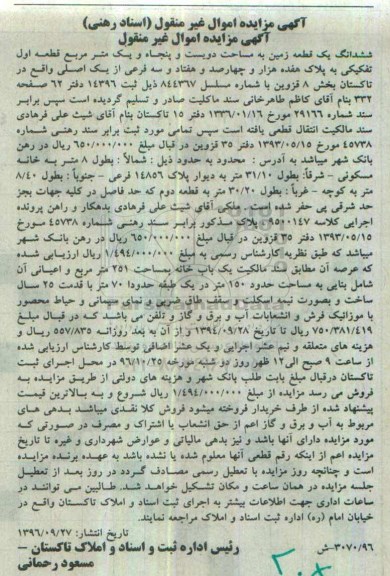 آگهی مزایده اموال غیر منقول (اسناد رهنی)
آگهی مزایده اموال غیر منقول
ششدانگ یک قطعه زمین به مساحت دویست و پنجاه و یک متر مربع قطعه اول
تفکیکی به پلاک هفده هزار و چهارصد و هفتاد و سه فرعی از یک اصلی واقع در
تاکستان بخش ۸ قزوین با شماره مسلسل ۸۴۴۳۶۷ ذیل ثبت ۱۴۳۹۶ دفتر ۶۲ صفحه
۳۳۲ بنام آقای کاظم طاهرخانی سند مالکیت صادر و تسلیم گردیده است سپس برابر
سند شماره ۲۹۱۶۶ مورخ ۱۳۳۶/۰۱/۱۶ دفتر ۱۵ تاکستان بنام آقای شیث علی فرهادی
سند مالکیت انتقال قطعی یافته است سپس تمامی مورد ثبت برابر سند رهنی شماره
۴۵۷۳۸ مورخ ۱۳۹۳/۰۵/۱۵ دفتر ۳۵ قزوین در قبال مبلغ ۶۵۰/۰۰۰/۰۰۰ ریال در رهن
بانک شهر میباشد به آدرس : محدود به حدود ذیل : شمالاً : بطول ۸ متر به خانه
مسکونی - شرقاً: بطول ۳۱/۱۰ متر به دیوار پلاک ۱۴۸۵۶ فرعی - جنوبی : بطول ۸/۴۰
متر به کوچه - غرباً : بطول ۳۰/۲۰ متر به قطعه دوم که حد فاصل در کلیه جهات بجز
حد شرقی پی حفر شده است . ملکی آقای شیث علی فرهادی بدهکار و راهن پرونده
اجرایی کلاسه ۹۵۰۰۱۴۷ . پلاک مذکور برابر سند رهنی شماره ۴۵۷۳۸ مورخ
۱۳۹۳/۰۵/۱۵ دفتر ۳۵ قزوین در قبال مبلغ ۶۵۰/۰۰۰/۰۰۰ ریال در رهن بانک شهر
میباشد که طبق نظریه کارشناس رسمی به مبلغ ۱/۴۹۴/۰۰۰/۰۰۰ ریال ارزیابی شده
که عرصه آن مطابق سند مالکیت یک باب خانه بمساحت ۲۵۱ متر مربع و اعیانی آن
شامل بنایی به مساحت حدود ۱۵۰ متر در یک طبقه حدودا ۷۰ متر با قدمت ۲۵ سال
ساخت و بصورت نیمه اسکلت سقف طاق ضربی و نمای سیمانی و حیاط محصور
با موزائیک فرش و انشعابات آب و برق و گاز و تلفن می باشد که در قبال مبلغ
۷۵۰/۳۸۱/۴۱۹ ریال تا تاریخ ۱۳۹۴/۰۹/۲۸ و از آن به بعد روزانه ۵۵۷/۸۳۵ ریال و
هزینه های متعلقه و نیم عشر اجرایی و یک عشر اضافی توسط کارشناس ارزیابی شده
از ساعت ۹ صبح الی ۱۲ ظهر روز دو شنبه مورخه ۹۶/۱۰/۲۵ در محل اجرای ثبت
تاکستان درقبال مبلغ بابت طلب بانک شهر و هزینه های دولتی از طریق مزایده به
فروش می رسد مزایده از مبلغ ۱/۴۹۴/۰۰۰/۰۰۰ ریال شروع و به بالاترین قیمت
پیشنهاد شده از طرف خریدار فروخته میشود فروش کلا نقدی میباشد بدهی های
مربوط به آب و برق و گاز اعم از حق انشعاب یا اشتراک و مصرف در صورتی که
مورد مزایده دارای آنها باشد و نیز بدهی مالیاتی و عوارض شهرداری و غیره تا تاریخ
مزایده اعم از اینکه رقم قطعی آنها معلوم شده یا نشده باشد به عهده برنده مزایده
است و چنانچه روز مزایده با تعطیل رسمی مصادف گردد در روز بعد از تعطیل
جلسه مزایده در همان ساعت و مکان تشکیل خواهد شد. طالبین می توانند در
ساعات اداری جهت اطلاعات بیشتر به اجرای ثبت اسناد و املاک تاکستان واقع در
خیابان امام (ره) اداره ثبت اسناد و املاک مراجعه نمایند.
تاریخ انتشار: ۱۳۹۶/۰۹/۲۷
۳۰۷۰/۹۶-ش
رئیس اداره ثبت و اسناد و املاک تاکستان –
مسعود رحمانی